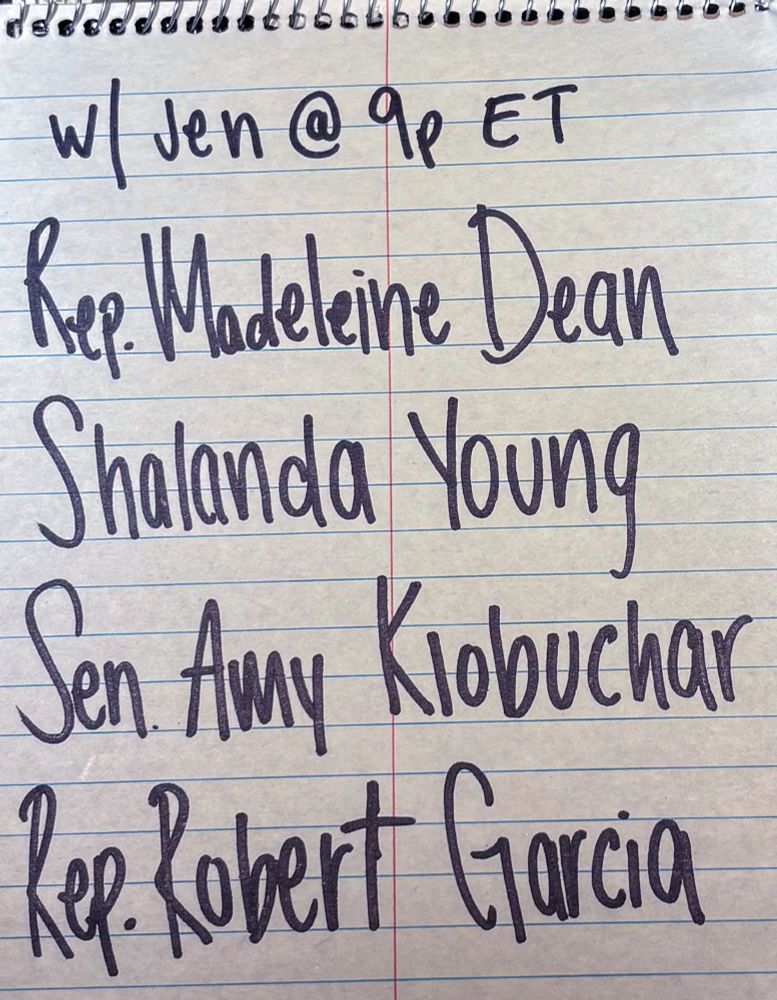 w/ Jen @ 9p ET
Rep. Madeleine Dean
Shalanda Young
Sen. Amy Klobuchar
Rep. Robert Garcia